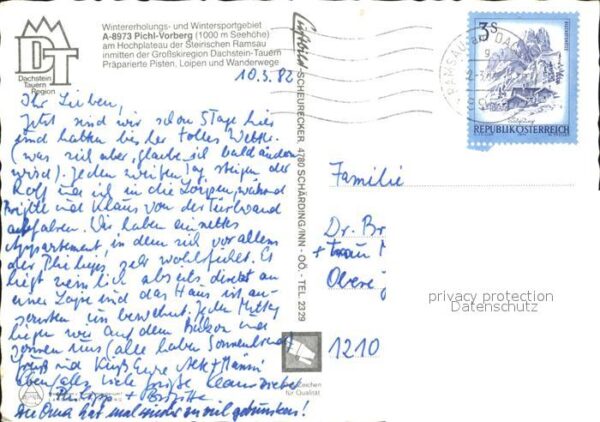 Wintererholungs- und Wintersportgebiet
A-8973 Pichl-Vorberg (1000 m Seehöhe)
am Hochplateau der Steirischen Ramsau
inmitten der Großskiregion Dachstein-Tauern
Präparierte Pisten, Loipen und Wanderwege
DT
Dachstein
Tauern
Region
10.3.82
Ihr Lieben,
Jetzt sind wir schon 5 Tage hier
und hatten bisher tolles Wetter
(was sich aber, glaube ich bald ändern
wird). Jeden zweiten Tag steigen der
Rolf und ich in die Loipen, während
Brigitte und Klaus von der Türlwand
abfahren. Wir haben ein nettes
Appartement, in dem sich vor allem
der Philipp sehr wohlfühlt. Es
liegt ziemlich abseits direkt an
einer Loipe und das Haus ist an-
sonsten unbewohnt. Jeden Mittag
liegen wir auf dem Balkon und
sonnen uns (alle haben Sonnenbrand)
Gruß und Kuß Eure
eben alles viele Grüße Klaus
Philipp + Brigitte
Die Oma hat mal wieder zu viel getrunken!
Luftbild
SCHEURECKER, 4780 SCHÄRDING/INN - OÖ. - TEL 2329
Zeichen
für Qualität
RAMSAU
3 S
REPUBLIK ÖSTERREICH
Familie
Dr. Br
+ Frau
Oberei
1210
privacy protection
Datenschutz